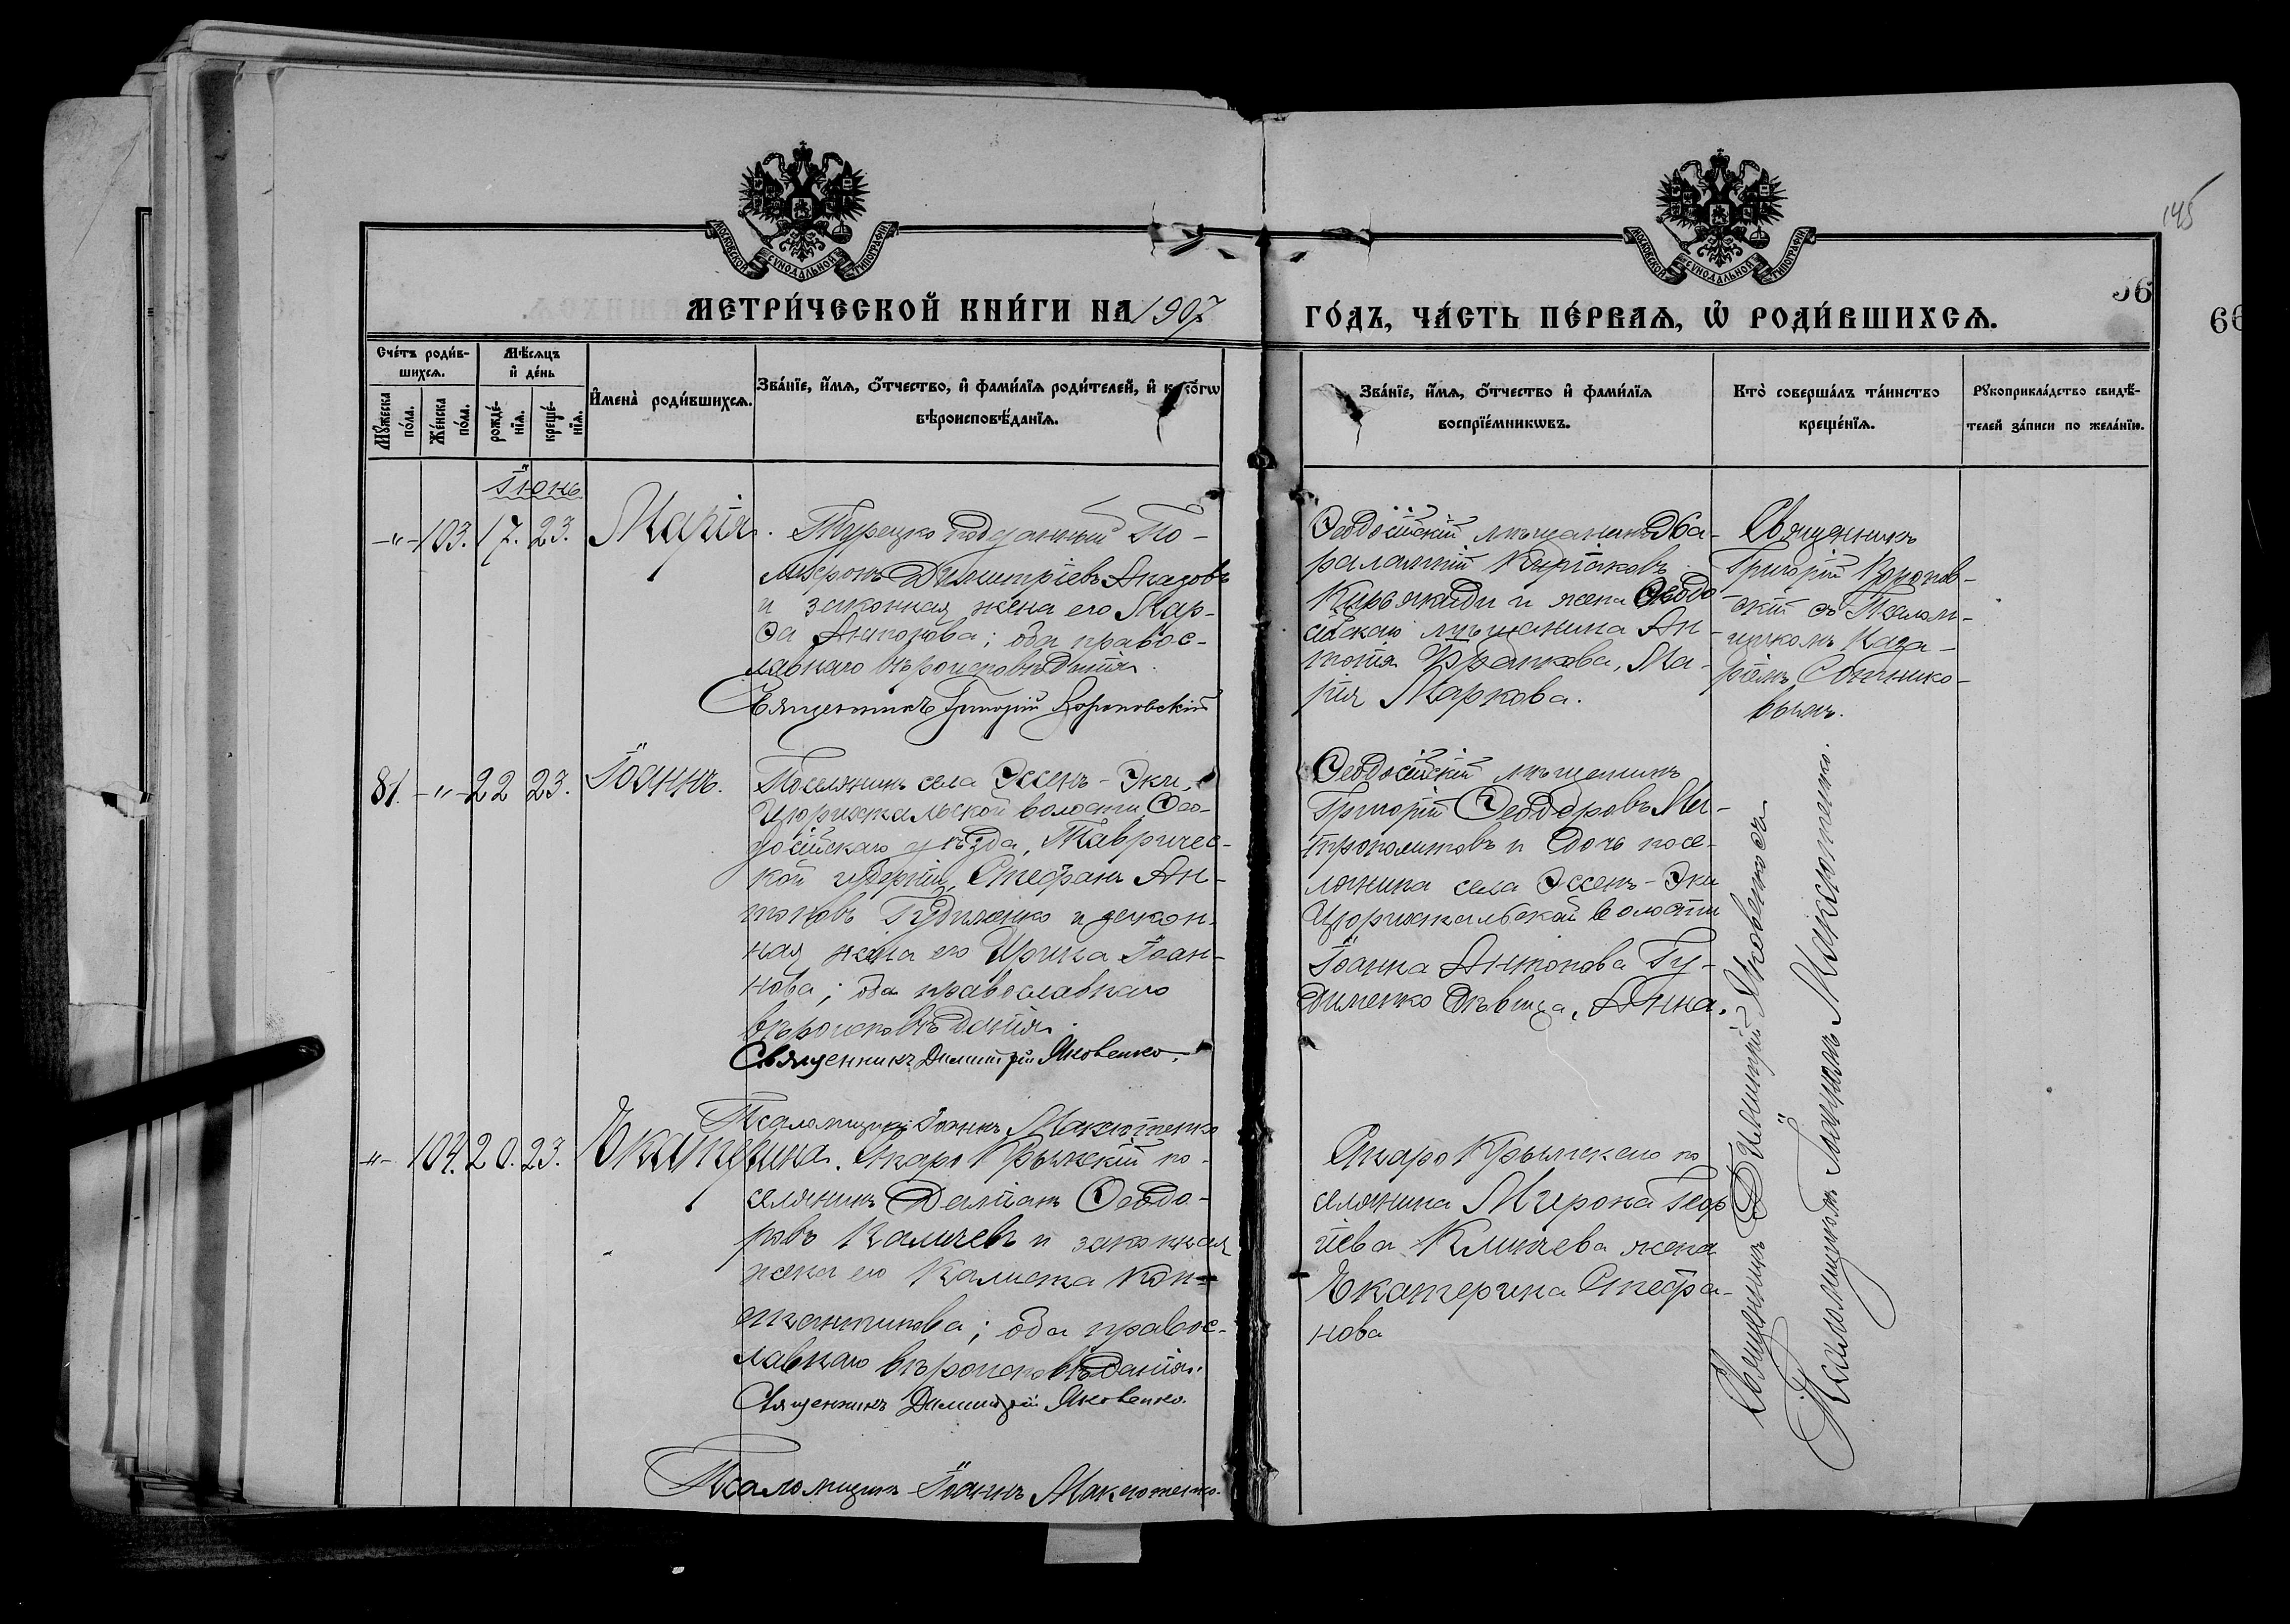 145
56
66
МОСКОВСКОЙ СѴНОДАЛЬНОЙ ТИПОГРАФІИ
МОСКОВСКОЙ СѴНОДАЛЬНОЙ ТИПОГРАФІИ
МЕТРИ́ЧЕСКОЙ КНИ́ГИ НА 1907
ГО́ДЪ, ЧА́СТЬ ПЕ́РВАѦ, Ѡ҆ РОДИ́ВШИХСѦ.
Сче́тъ роди́в-
шихсѧ.
Мѹ́жеска по́ла.
Же́нска по́ла.
Мѣ́сѧцъ
и҆ де́нь
рожде́-
нїѧ.
креще́-
нїѧ.
И҆мена̀ роди́вшихсѧ.
Зва́нїе, и҆́мѧ, ѻ҆́тчество, и҆ фами́лїѧ роди́телей, и҆ како́гѡ
вѣроисповѣ́данїѧ.
Зва́нїе, и҆́мѧ, ѻ҆́тчество и҆ фами́лїѧ
воспрїе́мникѡвъ.
Кто̀ соверша́лъ та́инство
креще́нїѧ.
Рѹкоприкла́дство свидѣ́-
телей за́писи по жела́нїю.
Іюнь
-"- 103. 17. 23. Марія.
Турецко подданный По-
Димитріевъ
и законная жена его Мар-
ѳа Антонова; оба правос-
лавнаго вѣроисповѣданія.
Священникъ Григорій
Ѳеодосійскій мѣщанинъ Ха-
ралампій Киріаковъ
Кирьякиди и жена Ѳеодо-
сійскаго мѣщанина Ан-
тонія Ма-
рія Маркова.
Священникъ
Григорій
скій съ Псалом-
щикомъ Наза-
ріемъ Сотнико-
вымъ.
81. -"- 22 23. Іоаннъ.
Поселянинъ села Эссенъ-Эки,
Цюрихтальской волости Ѳео-
досійскаго уѣзда, Тавричес-
кой губерніи, Стефанъ Ан-
тоновъ Гудименко и закон-
ная жена его Ирина Іоан-
нова; оба православнаго
вѣроисповѣданія.
Священникъ Димитрій Яковенко.
Псаломщикъ Іоаннъ Максютенко
Ѳеодосійскій мѣщанинъ
Григорій Ѳеодоровъ Ми-
трополитовъ и дочь посе-
лянина села Эссенъ-Эки
Цюрихтальской волости
Іоанна Антонова Гу-
дименко дѣвица, Анна.
Священникъ Димитрій Яковенко съ
Псаломщикомъ Іоанномъ Максютенко.
-"- 104. 20. 23. Екатерина.
Старо Крымскій по-
селянинъ Даміанъ Ѳеодо-
ровъ Каличевъ и законная
жена его Калиста Кон-
стантинова; оба правос-
лавнаго вѣроисповѣданія.
Священникъ Димитрій Яковенко.
Псаломщикъ Іоаннъ Максютенко.
Старо Крымскаго по
селянина Мирона Геор
гіева Клинчева жена
Екатерина Стефа-
нова